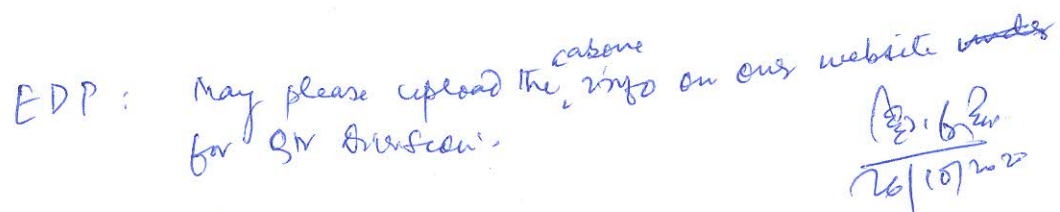 EDP : May please upload the above info on our website
for
26/10/2020